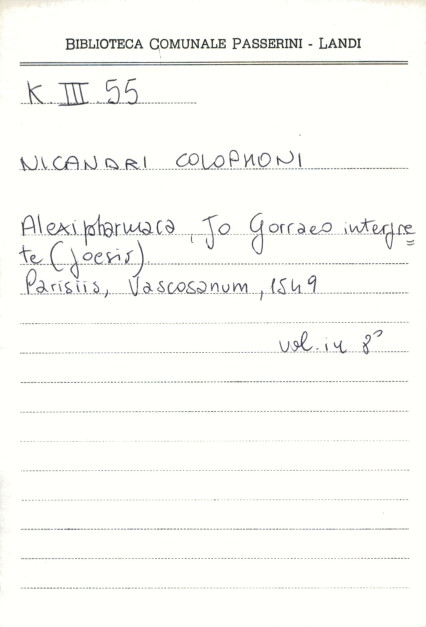 BIBLIOTECA COMUNALE PASSERINI - LANDI
K III 55
NICANDRI COLOPHONI
Alexipharmaca, Jo Gorraeo interpre=
te (poesis).
Parisiis, Vascosanum, 1549
vol. in 8°